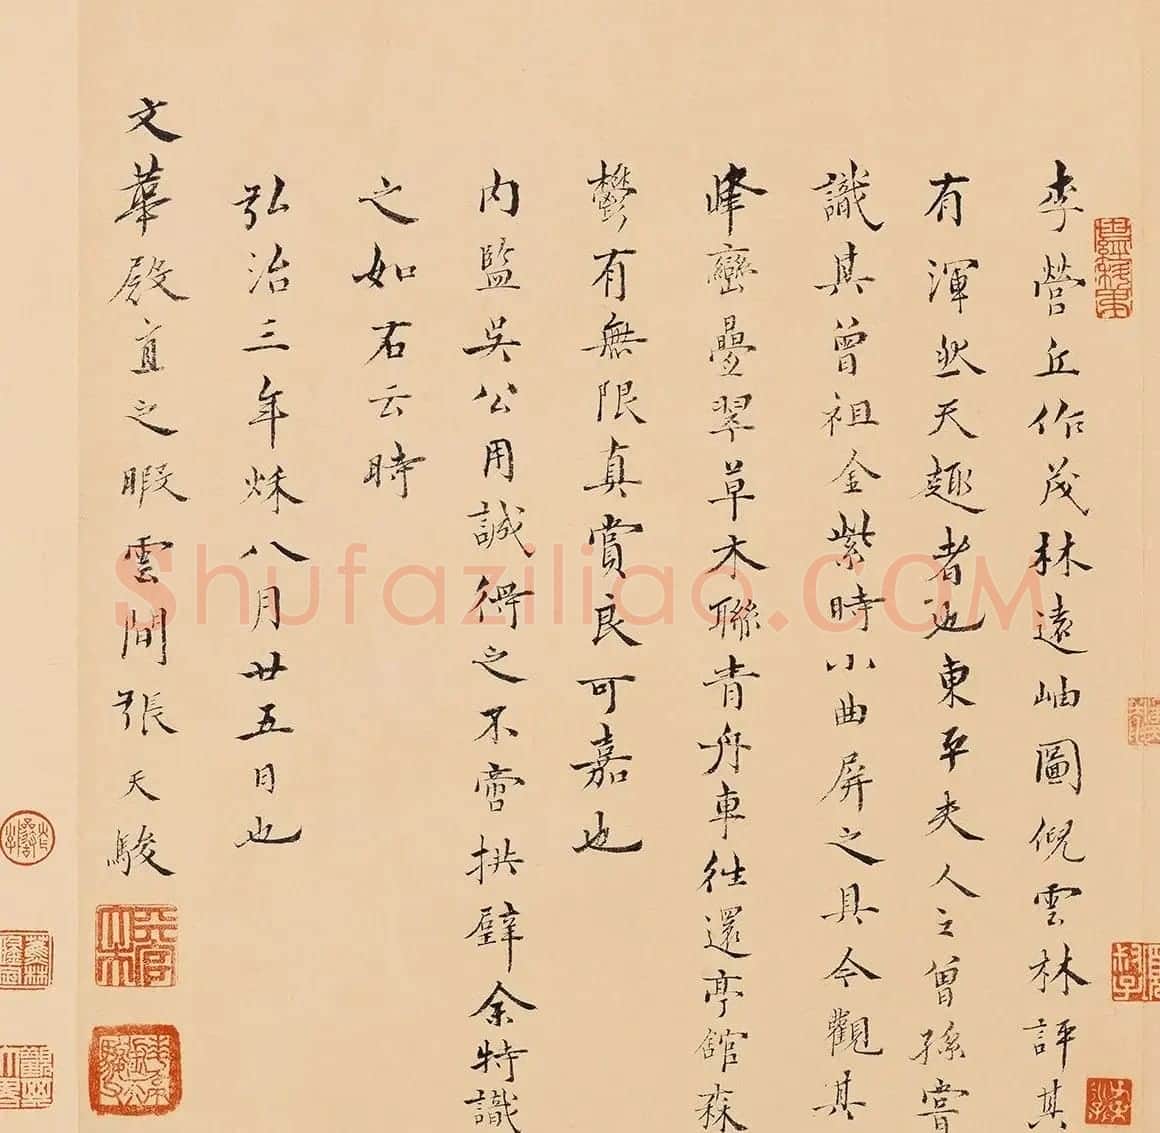 李營丘作茂林遠岫圖倪雲林評其
有渾然天趣者也東平夫人之曾孫嘗
識其曾祖金紫時小曲屏之具今觀其
峰巒疊翠草木聯青舟車往還亭館森
鬱有無限真賞良可嘉也
内監吳公用誠得之不啻拱璧余特識
之如右云時
弘治三年秌八月廿五日也
文華殿直之暇雲間張天駿
Shufaziliao.COM